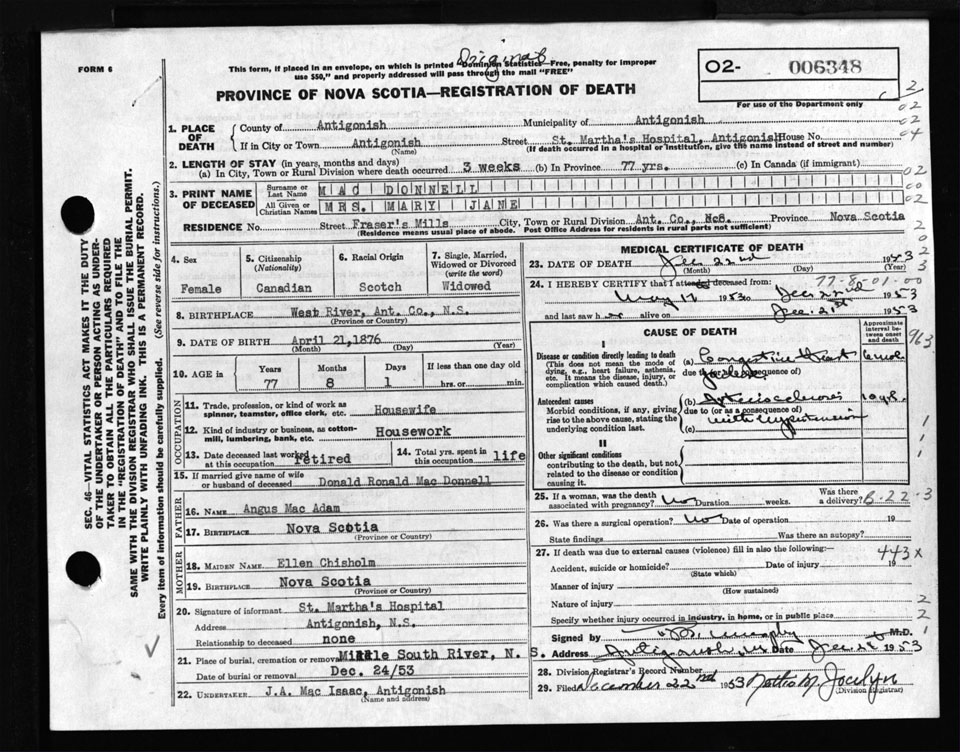 FORM 6
Original
This form, if placed in an envelope, on which is printed "Dominion Statistics—Free, penalty for improper
use $50," and properly addressed will pass through the mail "FREE"
PROVINCE OF NOVA SCOTIA—REGISTRATION OF DEATH
02- 006348
For use of the Department only
2
02
02
04
1. PLACE OF DEATH
County of Antigonish Municipality of Antigonish
If in City or Town Antigonish Street St. Martha's Hospital, Antigonish House No.
(Name) (If death occurred in a hospital or institution, give the name instead of street and number)
2. LENGTH OF STAY (in years, months and days)
(a) In City, Town or Rural Division where death occurred 3 weeks (b) In Province 77 yrs. (c) In Canada (if immigrant)
02
00
02
3. PRINT NAME OF DECEASED
Surname or Last Name MAC DONNELL
All Given or Christian Names MRS. MARY JANE
RESIDENCE No. Street Fraser's Mills City, Town or Rural Division Ant. Co., NcS. Province Nova Scotia
(Residence means usual place of abode. Post Office Address for residents in rural parts not sufficient)
4. Sex
Female
5. Citizenship
(Nationality)
Canadian
6. Racial Origin
Scotch
7. Single, Married,
Widowed or Divorced
(write the word)
Widowed
8. BIRTHPLACE West River, Ant. Co., N.S.
(Province or Country)
9. DATE OF BIRTH April 21,1876
(Month) (Day) (Year)
10. AGE in Years Months Days If less than one day old
77 8 1 hrs. or min.
OCCUPATION
11. Trade, profession, or kind of work as
spinner, teamster, office clerk, etc. Housewife
12. Kind of industry or business, as cotton-
mill, lumbering, bank, etc. Housework
13. Date deceased last worked
at this occupation retired
14. Total yrs. spent in
this occupation life
15. If married give name of wife
or husband of deceased Donald Ronald Mac Donnell
FATHER
16. NAME Angus Mac Adam
17. BIRTHPLACE Nova Scotia
(Province or Country)
MOTHER
18. MAIDEN NAME Ellen Chisholm
19. BIRTHPLACE Nova Scotia
(Province or Country)
20. Signature of informant St. Martha's Hospital
Address Antigonish, N.S.
Relationship to deceased none
21. Place of burial, cremation or removal Middle South River, N. S.
Date of burial or removal Dec. 24/53
22. UNDERTAKER J.A. Mac Isaac, Antigonish
(Name and address)
MEDICAL CERTIFICATE OF DEATH
23. DATE OF DEATH Dec. 22nd 1953
(Month) (Day) (Year)
77-8-01-00
24. I HEREBY CERTIFY that I attended deceased from:
May 1953 to Dec 22nd 1953
and last saw h er alive on Dec. 21st 1953
CAUSE OF DEATH
Approximate interval between onset and death
963
Disease or condition directly leading to death
(This does not mean the mode of
dying, e.g., heart failure, asthenia,
etc. It means the disease, injury, or
complication which caused death.)
(a) Congestive Heart
due to (or as a consequence of)
failure
Antecedent causes
Morbid conditions, if any, giving
rise to the above cause, stating the
underlying condition last.
(b) Arteriosclerosis 10 yrs.
due to (or as a consequence of)
with hypertension
(c)
II
Other significant conditions
contributing to the death, but not
related to the disease or condition
causing it.
25. If a woman, was the death
associated with pregnancy? no Duration weeks. Was there
a delivery?
B-22-3
26. Was there a surgical operation? no Date of operation 19
State findings Was there an autopsy?
27. If death was due to external causes (violence) fill in also the following:—
443 x
Accident, suicide or homicide? Date of injury 19
(State which)
Manner of injury
(How sustained)
Nature of injury
Specify whether injury occurred in industry, in home, or in public place
Signed by Murphy M.D.
Address Antigonish NS Date Dec 1953
28. Division Registrar's Record Number
29. Filed December 22nd 1953 Nettie M. Jocelyn
(Division Registrar)
SEC. 46—VITAL STATISTICS ACT MAKES IT THE DUTY
OF THE UNDERTAKER OR PERSON ACTING AS UNDER-
TAKER TO OBTAIN ALL THE PARTICULARS REQUIRED
IN THE "REGISTRATION OF DEATH" AND TO FILE THE
SAME WITH THE DIVISION REGISTRAR WHO SHALL ISSUE THE BURIAL PERMIT.
WRITE PLAINLY WITH UNFADING INK. THIS IS A PERMANENT RECORD.
Every item of information should be carefully supplied. (See reverse side for instructions.)